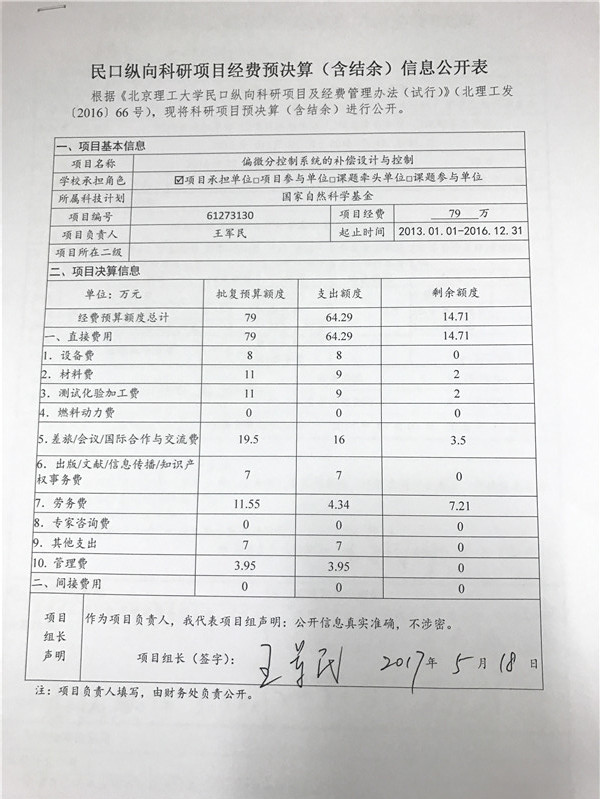 民口纵向科研项目经费预决算（含结余）信息公开表
根据《北京理工大学民口纵向科研项目及经费管理办法（试行）》（北理工发
〔2016〕66 号），现将科研项目预决算（含结余）进行公开。
一、项目基本信息
项目名称 偏微分控制系统的补偿设计与控制
学校承担角色 ☑项目承担单位□项目参与单位□课题牵头单位□课题参与单位
所属科技计划 国家自然科学基金
项目编号 61273130 项目经费 79 万
项目负责人 王军民 起止时间 2013.01.01-2016.12.31
项目所在二级
二、项目决算信息
单位：万元 批复预算额度 支出额度 剩余额度
经费预算额度总计 79 64.29 14.71
一、直接费用 79 64.29 14.71
1. 设备费 8 8 0
2. 材料费 11 9 2
3. 测试化验加工费 11 9 2
4. 燃料动力费 0 0 0
5. 差旅/会议/国际合作与交流费 19.5 16 3.5
6. 出版/文献/信息传播/知识产
权事务费 7 7 0
7. 劳务费 11.55 4.34 7.21
8. 专家咨询费 0 0 0
9. 其他支出 7 7 0
10. 管理费 3.95 3.95 0
二、间接费用 0 0 0
项目
组长
声明
作为项目负责人，我代表项目组声明：公开信息真实准确，不涉密。
项目组长（签字）： 王军民 2017年 5 月 18 日
注：项目负责人填写，由财务处负责公开。